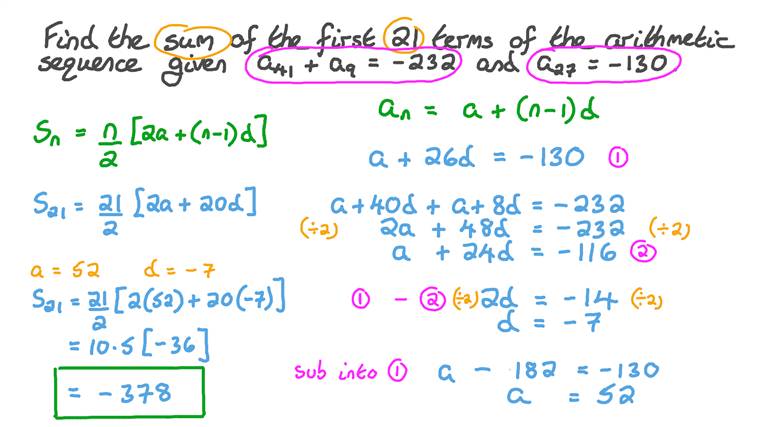 Find the sum of the first 21 terms of the arithmetic
sequence given a₄₁ + a₉ = -232 and a₂₇ = -130
Sₙ = n/2 [2a + (n-1)d]
S₂₁ = 21/2 [2a + 20d]
a = 52 d = -7
S₂₁ = 21/2 [2(52) + 20(-7)]
= 10.5 [-36]
= -378
aₙ = a + (n-1)d
a + 26d = -130 ①
a + 40d + a + 8d = -232
(÷2) 2a + 48d = -232 (÷2)
a + 24d = -116 ②
① - ② (÷2) 2d = -14 (÷2)
d = -7
sub into ① a - 182 = -130
a = 52